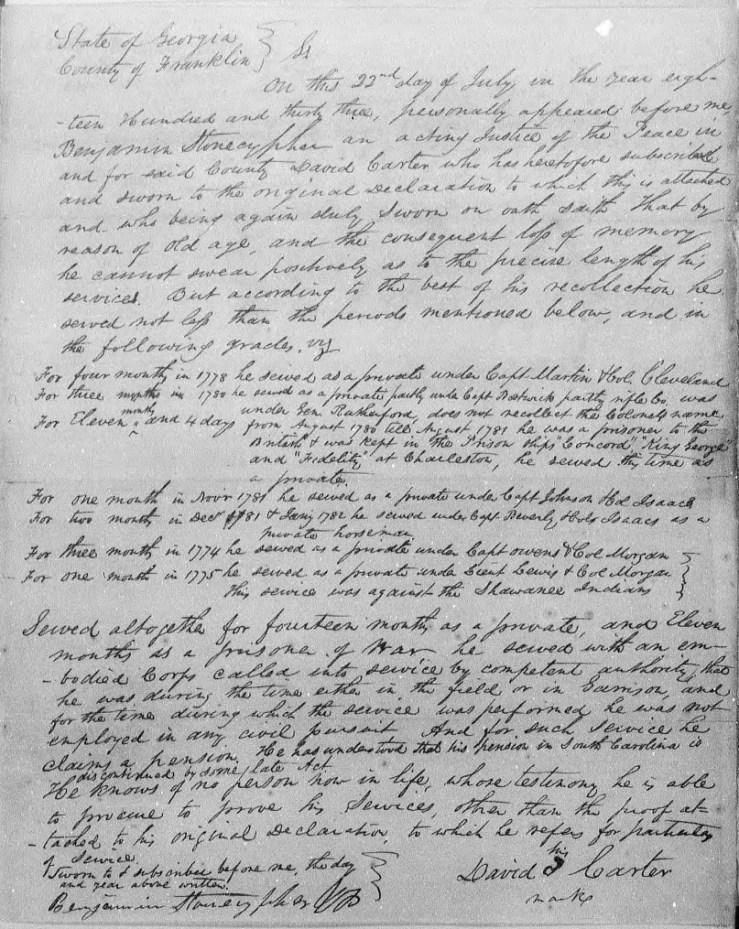 State of Georgia
County of Franklin } Ss
On this 22nd day of July in the year eigh-
-teen Hundred and thirty three, personally appeared before me,
Benjamin Stonecypher an acting Justice of the Peace in
and for said County David Carter who has heretofore subscribed
and sworn to the original Declaration to which this is attached
and who being again duly sworn on oath saith that by
reason of old age, and the consequent loss of memory
he cannot swear positively as to the precise length of his
services. But according to the best of his recollection he
served not less than the periods mentioned below, and in
the following grades. viz
For four months in 1778 he served as a private under Capt Martin & Col. Cleveland
For three months in 1780 he served as a private partly under Capt Bostwick partly rifle Co. was
under Gen. Rutherford, does not recollect the Colonels name
For Eleven months and 4 days from August 1780 till August 1781 he was a prisoner to the
British & was kept in the Prison Ships "Concord" "King George"
and "Fidelity" at Charleston, he served this time as
a private.
For one month in Novr 1781 he served as a private under Capt Johnson & Col Isaacs
For two month in Decr 1781 & Jany 1782 he served under Capt Beverly & Col Isaacs as a
private horseman
For three month in 1774 he served as a private under Capt Owens & Col Morgan
For one month in 1775 he served as a private under Lieut Lewis & Col Morgan
this service was against the Shawanee Indians
Served altogether for fourteen months as a private, and Eleven
months as a prisoner of War he served with an em-
-bodied Corps called into service by competent authority, that
he was during the time either in the field or in Garrison, and
for the time during which the service was performed he was not
employed in any civil pursuit. And for such service he
claims a pension. He has understood that his pension in South Carolina is
discontinued by some late Act
He knows of no person now in life, whose testimony he is able
to procure to prove his services, other than the proof at-
-tached to his original Declaration, to which he refers for particulars
of service.
Sworn to & subscribed before me, the day
and year above written.
Benjamin Stonecypher JP
David his Carter
mark